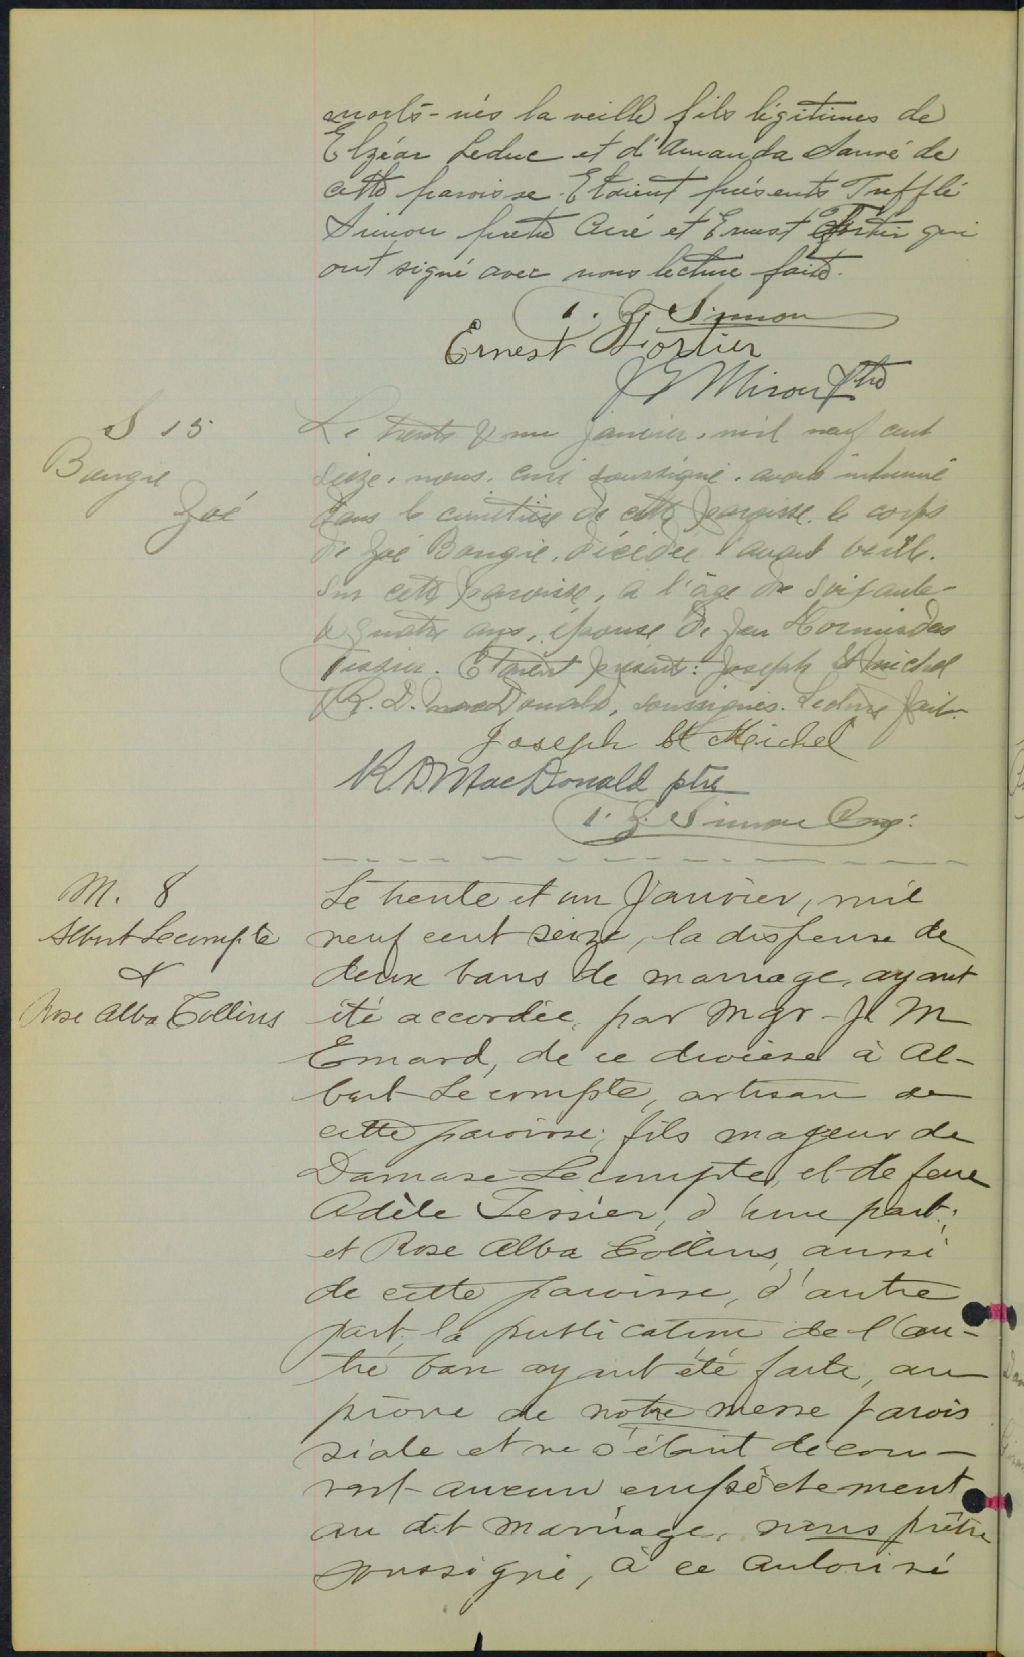 morts-nés la veille fils légitimes de
Elzéar Leduc et d'Amanda Sauvé de
cette paroisse. Etaient présents Tréfflé
Simon prêtre Curé et Ernest Fortier qui
ont signé avec nous lecture faite.
T. Z. Simon
Ernest Fortier
J E Miron Ptre
S 15
Bougie
Zoé
Le trente & un janvier, mil neuf cent
seize, nous, curé soussigné, avons inhumé
dans le cimetière de cette paroisse, le corps
de Zoé Bougie, décédée l'avant veille.
sur cette paroisse, à l'âge de soixante-
& quatre ans, épouse de feu Hormisdas
Tessier. Etaient présent: Joseph St Michel
& R. D. MacDonald, soussignés. Lecture faite.
Joseph St Michel
R. D. MacDonald ptre
T. Z. Simon Curé.
M. 8
Albert Lecompte
&
Rose Alba Collins
Le trente et un Janvier, mil
neuf cent seize, la dispense de
deux bans de mariage, ayant
été accordée, par Mgr J. M
Emard, de ce diocèse à Al-
bert Lecompte, artisan de
cette paroisse; fils majeur de
Damase Lecompte, et de feue
Adèle Tessier, d'une part;
et Rose Alba Collins, aussi
de cette paroisse, d'autre
part, la publication de l'au-
tre ban ayant été faite, au
prône de notre messe parois
siale et ne s'étant décou-
vert aucun empêchement
au dit mariage, nous prêtre
soussigné, à ce autorisé